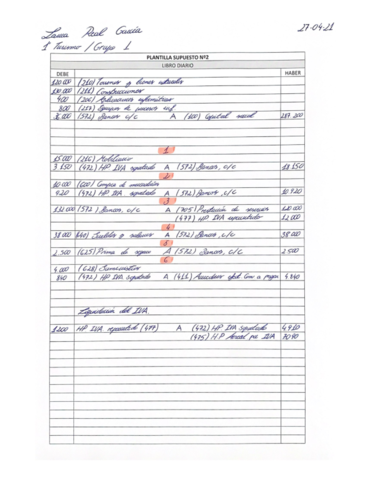 Laura Real García 27-04-21
1º Turismo / Grupo 1
PLANTILLA SUPUESTO Nº2
LIBRO DIARIO
DEBE HABER
(210) Terrenos y bienes naturales
(211) Construcciones
400 (206) Aplicaciones informáticas
800 (217) Equipos de procesos inf
(572) Bancos c/c A (100) Capital social
1
15.000 (216) Mobiliario
3.150 (472) HP IVA soportado A (572) Bancos, c/c 18.150
2
(600) Compra de mercaderías
(472) HP IVA soportado A (572) Bancos, c/c
3
132.000 (572) Bancos, c/c A (705) Prestación de servicios 120.000
(477) HP IVA repercutido 12.000
4
38.000 (640) Sueldos y salarios A (572) Bancos, c/c 38.000
5
2.500 (625) Prima de seguros A (572) Bancos, c/c 2.500
6
4.000 (628) Suministros
840 (472) HP IVA soportado A 4.840
Liquidación del IVA
HP IVA repercutido (477) A (472) HP IVA soportado 4.910
(475) HP Acreed por IVA 7.090